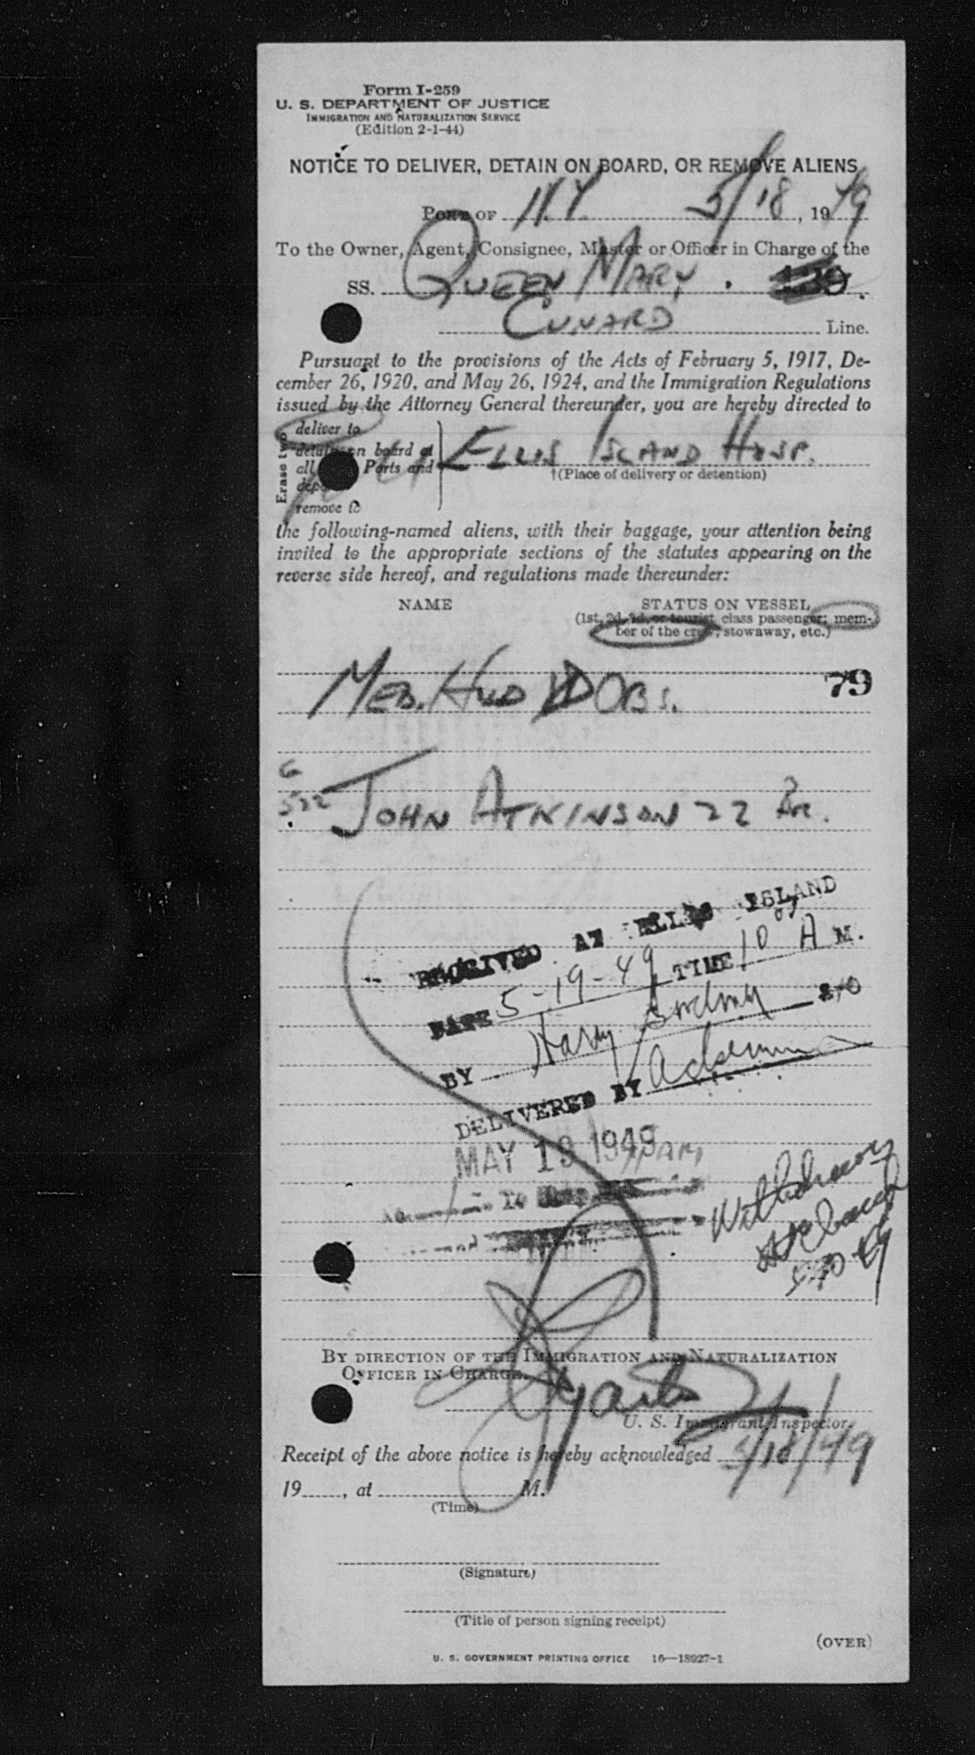 Form I-259
U. S. DEPARTMENT OF JUSTICE
IMMIGRATION AND NATURALIZATION SERVICE
(Edition 2-1-44)
NOTICE TO DELIVER, DETAIN ON BOARD, OR REMOVE ALIENS
PORT OF N.Y. 5/18, 1949
To the Owner, Agent, Consignee, Master or Officer in Charge of the
SS. QUEEN MARY.
CUNARD Line.
Pursuant to the provisions of the Acts of February 5, 1917, De-
cember 26, 1920, and May 26, 1924, and the Immigration Regulations
issued by the Attorney General thereunder, you are hereby directed to
Erase two
deliver to
detain on board at
all Ports and
remove to
ELLIS ISLAND HOSP.
†(Place of delivery or detention)
the following-named aliens, with their baggage, your attention being
invited to the appropriate sections of the statutes appearing on the
reverse side hereof, and regulations made thereunder:
NAME STATUS ON VESSEL
(1st, 2d, 3d, or tourist class passenger; mem-
ber of the crew, stowaway, etc.)
79
MED. HLD OBS.
G
522 JOHN ATKINSON 22 Br.
RECEIVED AT ELLIS ISLAND
DATE 5-19-49 TIME 10 A M.
BY Harry
DELIVERED BY
MAY 19 1949
BY DIRECTION OF THE IMMIGRATION AND NATURALIZATION
OFFICER IN CHARGE.
U. S. Immigrant Inspector.
Receipt of the above notice is hereby acknowledged 5/18/49
19, at M.
(Time)
(Signature)
(Title of person signing receipt)
(OVER)
U. S. GOVERNMENT PRINTING OFFICE 16—18927-1